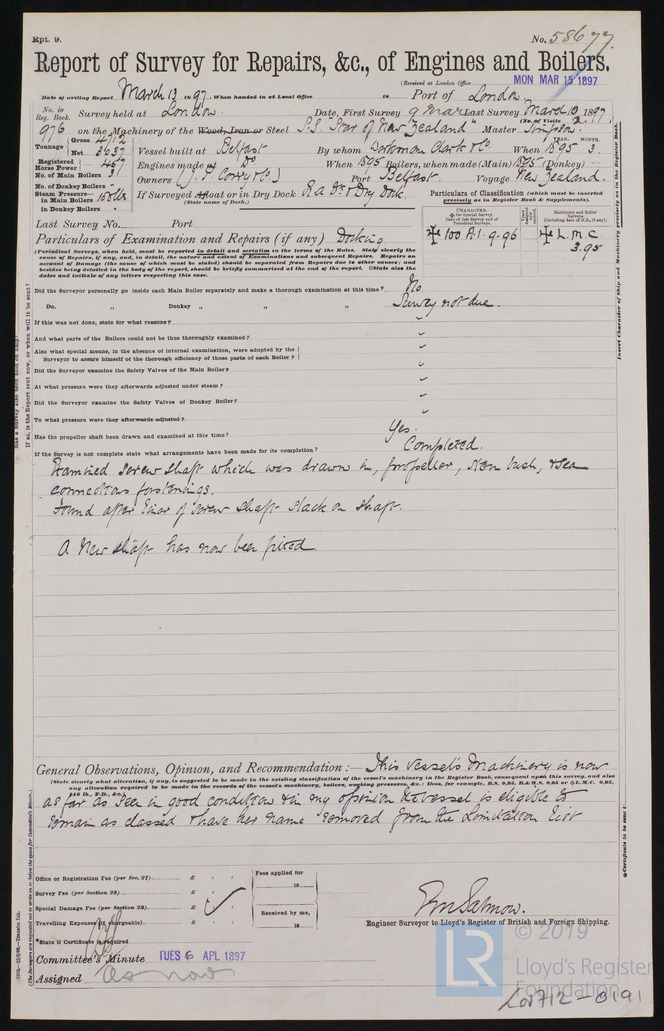 Rpt. 9.
No. 58677.
Report of Survey for Repairs, &c., of Engines and Boilers.
(Received at London Office MON MAR 15 1897
Date of writing Report March 13 1897. When handed in at Local Office 18 Port of London
No. in Reg. Book. Survey held at London. Date, First Survey 9 Mar Last Survey March 10 1897
(No. of Visits 2)
976 on the Machinery of the Wood, Iron or Steel S.S. "Star of New Zealand" Master Simpson.
Tonnage Gross 4712 Net 3037 Vessel built at Belfast By whom Workman Clark & Co. When 1895 MONTH. 3.
Registered Horse Power 467 Engines made at Do When 1895 Boilers, when made (Main) 1895 (Donkey) —
No. of Main Boilers 3 Owners (J. P. Corry & Co.) Port Belfast. Voyage New Zealand.
No. of Donkey Boilers "
Steam Pressure— in Main Boilers
in Donkey Boilers "
If Surveyed Afloat or in Dry Dock R. A. Dk & Dry Dock.
(State name of Dock.)
Particulars of Classification (which must be inserted precisely as in Register Book & Supplements).
Last Survey No. Port
100 A.1. 9.96
L.M.C 3.95
Particulars of Examination and Repairs (if any) Docking
(Periodical Surveys, when held, must be reported in detail and seriatim in the terms of the Rules. State clearly the
cause of Repairs, if any, and, in detail, the nature and extent of Examinations and subsequent Repairs. Repairs on
account of Damage (the cause of which must be stated) should be separated from Repairs due to other causes; and
besides being detailed in the body of the report, should be briefly summarised at the end of the report. State also the
dates and initials of any letters respecting this case.
Did the Surveyor personally go inside each Main Boiler separately and make a thorough examination at this time? No
Do. " Donkey " " " Survey not due.
If this was not done, state for what reasons?
And what parts of the Boilers could not be thus thoroughly examined?
Also what special means, in the absence of internal examination, were adopted by the
Surveyor to assure himself of the thorough efficiency of those parts of each Boiler?
Did the Surveyor examine the Safety Valves of the Main Boiler?
At what pressure were they afterwards adjusted under steam?
Did the Surveyor examine the Safety Valves of Donkey Boiler?
To what pressure were they afterwards adjusted?
Has the propeller shaft been drawn and examined at this time? Yes.
If the Survey is not complete state what arrangements have been made for its completion? Completed.
Examined screw shaft which was drawn in, propeller, stern bush, & sea
connections fastenings.
Found after liner of screw shaft slack on shaft.
A New shaft has now been fitted.
General Observations, Opinion, and Recommendation:— This vessel's machinery is now
(State clearly what alteration, if any, is suggested to be made in the existing classification of the vessel's machinery in the Register Book, consequent upon this survey, and also
any alteration required to be made in the records of the vessel's machinery, boilers, working pressures, &c.; thus, for example, B.S. 9,95, B.&M.S. 9,95 or L.M.C. 9,95,
as far as seen in good condition & in my opinion the vessel is eligible to
remain as classed & have her name removed from the Limitation List
Office or Registration Fee (per Sec. 27) £
Survey Fee (per Section 28) £
Special Damage Fee (per Section 28) £
Travelling Expenses (if chargeable) £
Fees applied for 18
Received by me, 18
Engineer Surveyor to Lloyd's Register of British and Foreign Shipping.
*State if Certificate is required
Committee's Minute TUES 6 APL 1897
Assigned as now
LR
© 2019
Lloyd's Register
Foundation